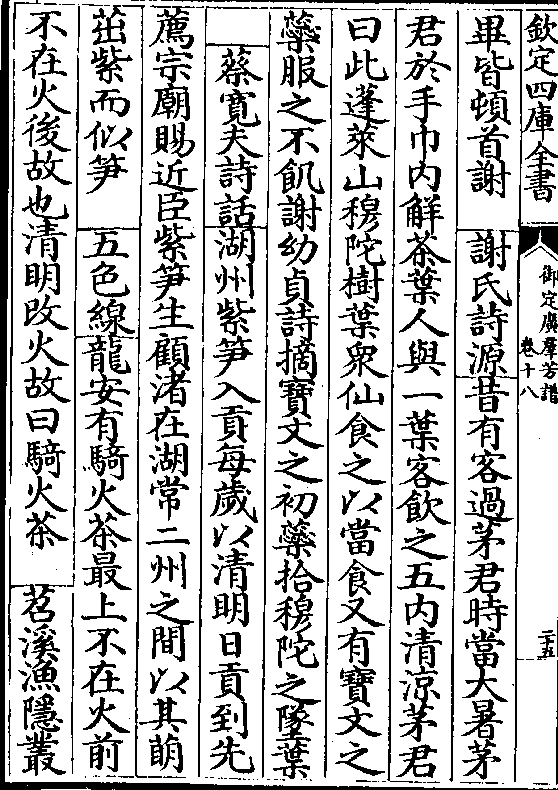 欽定四庫全書
御定廣羣芳譜
卷十八
二十五
畢皆頓首謝 謝氏詩源昔有客過茅君時當大暑茅
君於手巾内解茶葉人與一葉客飲之五内清涼茅君
曰此蓬萊山穆陀樹葉衆仙食之以當食又有寶文之
蘂服之不飢謝幼貞詩摘寶文之初蘂拾穆陀之墜葉
蔡寛夫詩話湖州紫笋入貢每歲以清明日貢到先
薦宗廟賜近臣紫笋生顧渚在湖常二州之間以其萌
茁紫而似笋 五色線龍安有騎火茶最上不在火前
不在火後故也清明改火故曰騎火茶 苕溪漁隱叢